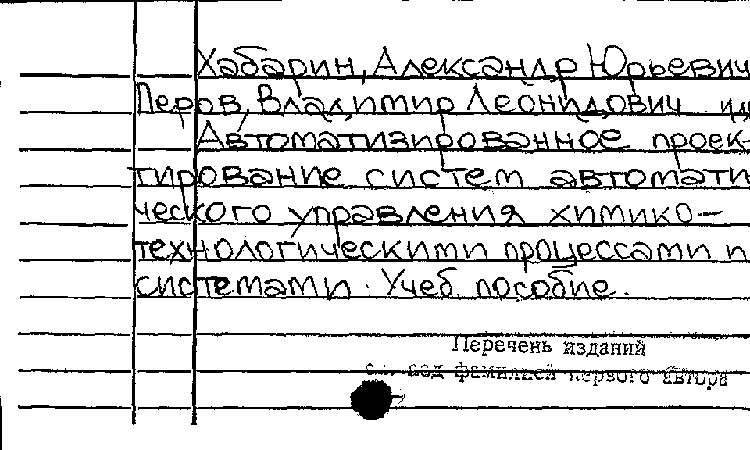 Хабарин, Александр Юрьевич
Перов, Владимир Леонидович и др
Автоматизированное проек-
тирование систем автомати
ческого управления химико-
технологическими процессами и
системами. Учеб. пособие.
Перечень изданий
см. под фамилией первого автора